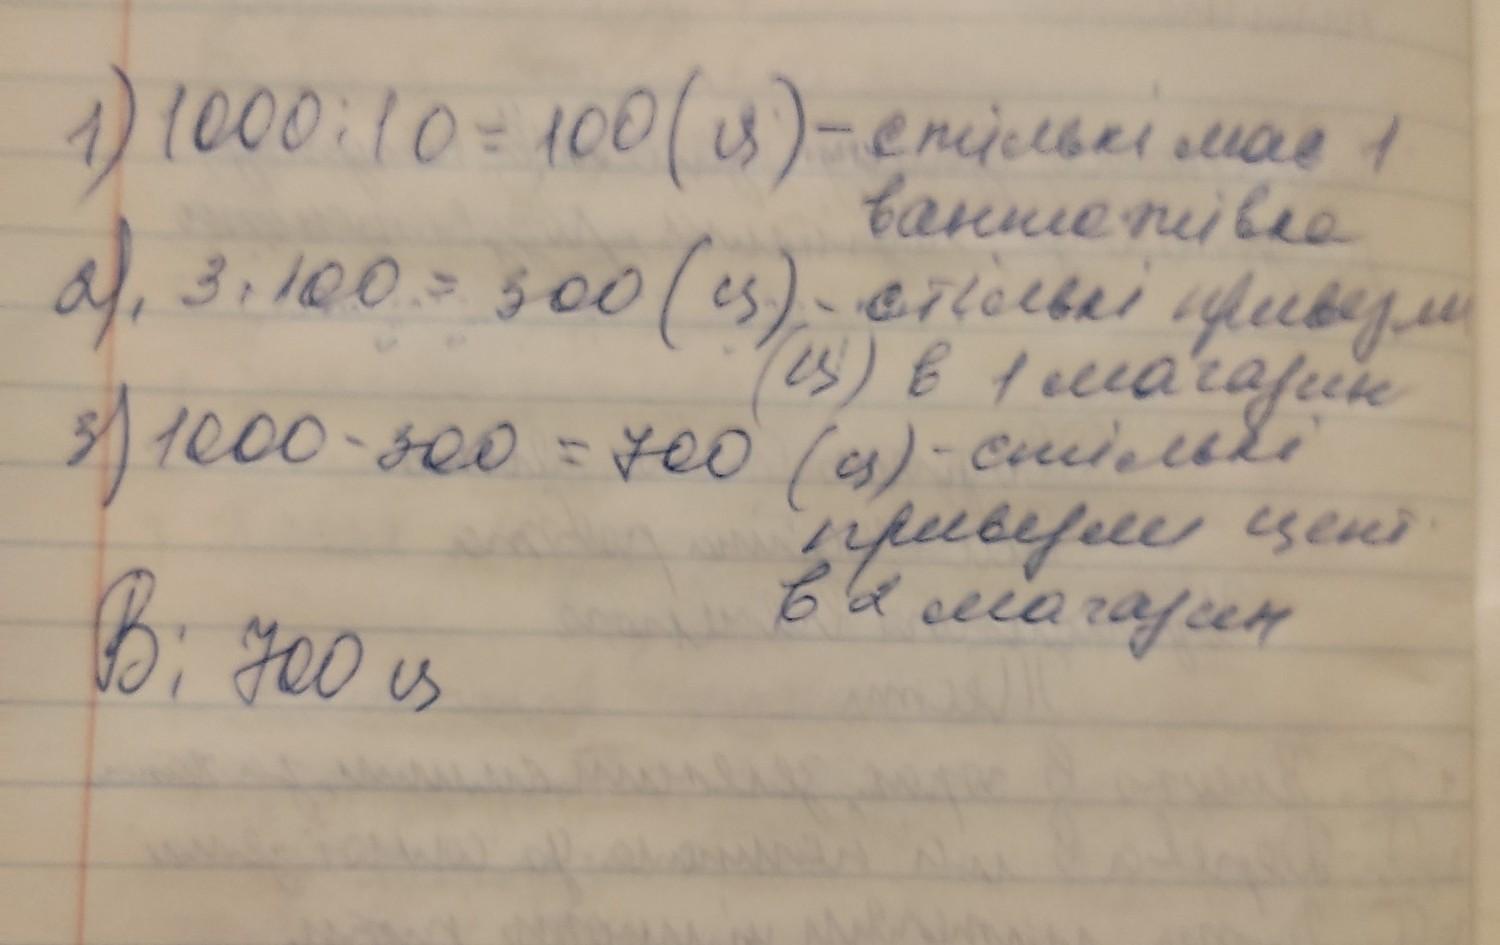 1) 1000 : 10 = 100 (ц) - стількі має 1
вантажівка
2). 3 · 100 = 300 (ц) - стількі привезли
(ц) в 1 магазин
3) 1000 - 300 = 700 (ц) - стількі
привезли цент
в 2 магазин
В: 700 ц